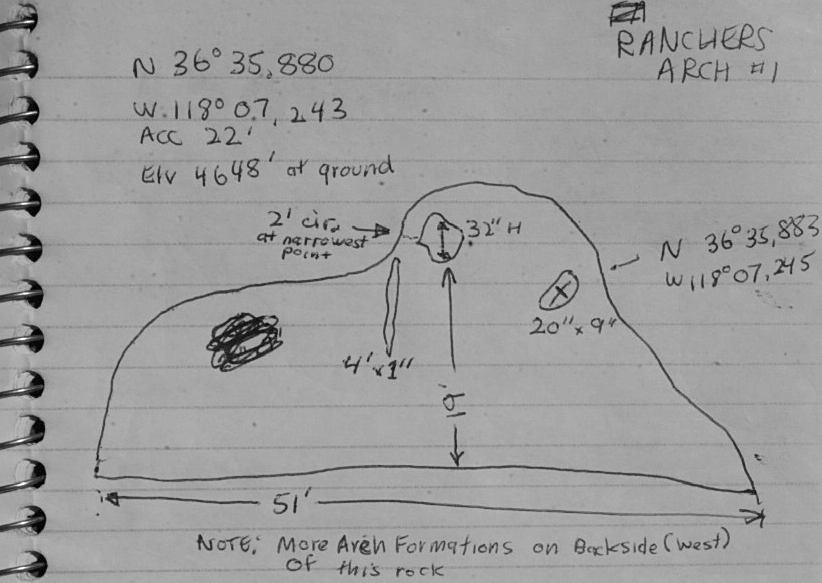 RANCHERS
ARCH #1
N 36° 35,880
W.118° 07,243
Acc 22'
Elv 4648' at ground
2' cir.
at narrowest
point
32" H
N 36° 35,883
W,118° 07,245
20" x 9"
4' x 1"
19'
51'
NOTE: More Arch Formations on Backside (west)
Of this rock